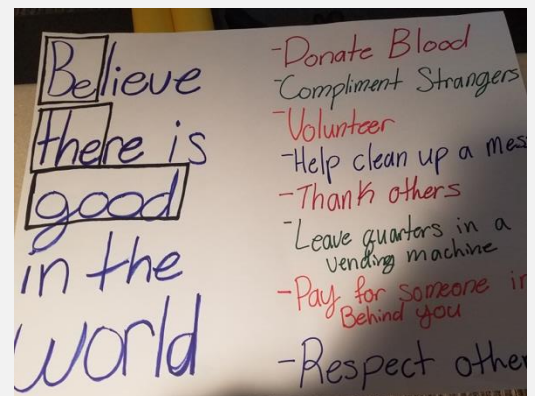 Believe
there is
good
in the
world
-Donate Blood
-Compliment Strangers
-Volunteer
-Help clean up a mes
-Thank others
-Leave quarters in a
vending machine
-Pay for someone in
Behind you
-Respect other